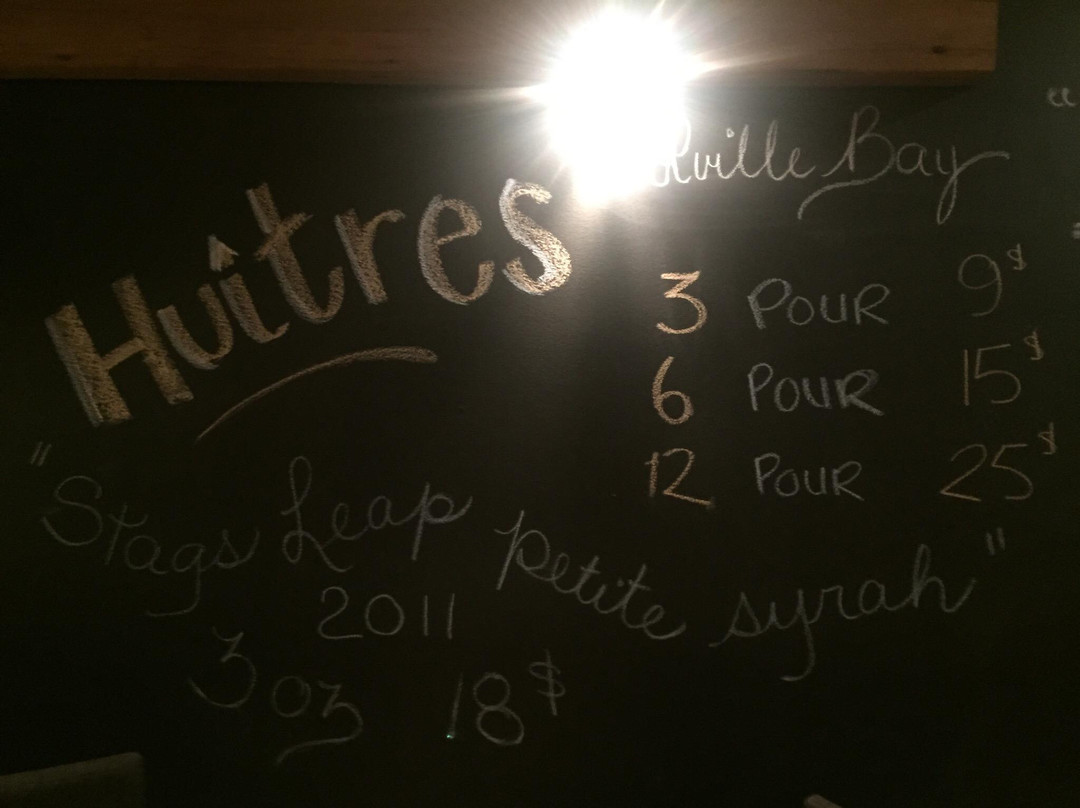 Huîtres
Bay
3 POUR 9$
6 POUR 15$
12 POUR 25$
"Stags Leap Petite syrah"
2011
3 oz 18$